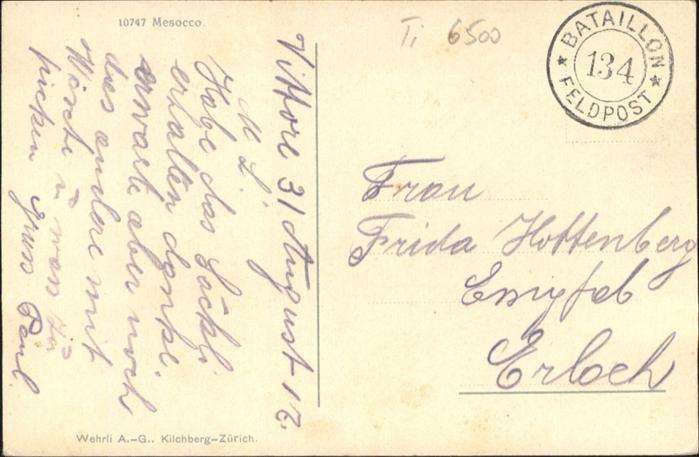 10747 Mesocco.
Vittore 31 August 17.
M L.
Habe das Säckli
erhalten danke.
erwarte aber noch
das andere mit
Wäsche u was zu
picken Gruss Paul
Wehrli A.-G., Kilchberg-Zürich.
Ti 6500
BATAILLON
134
FELDPOST
Frau
Frida Hottenberg
Erlach